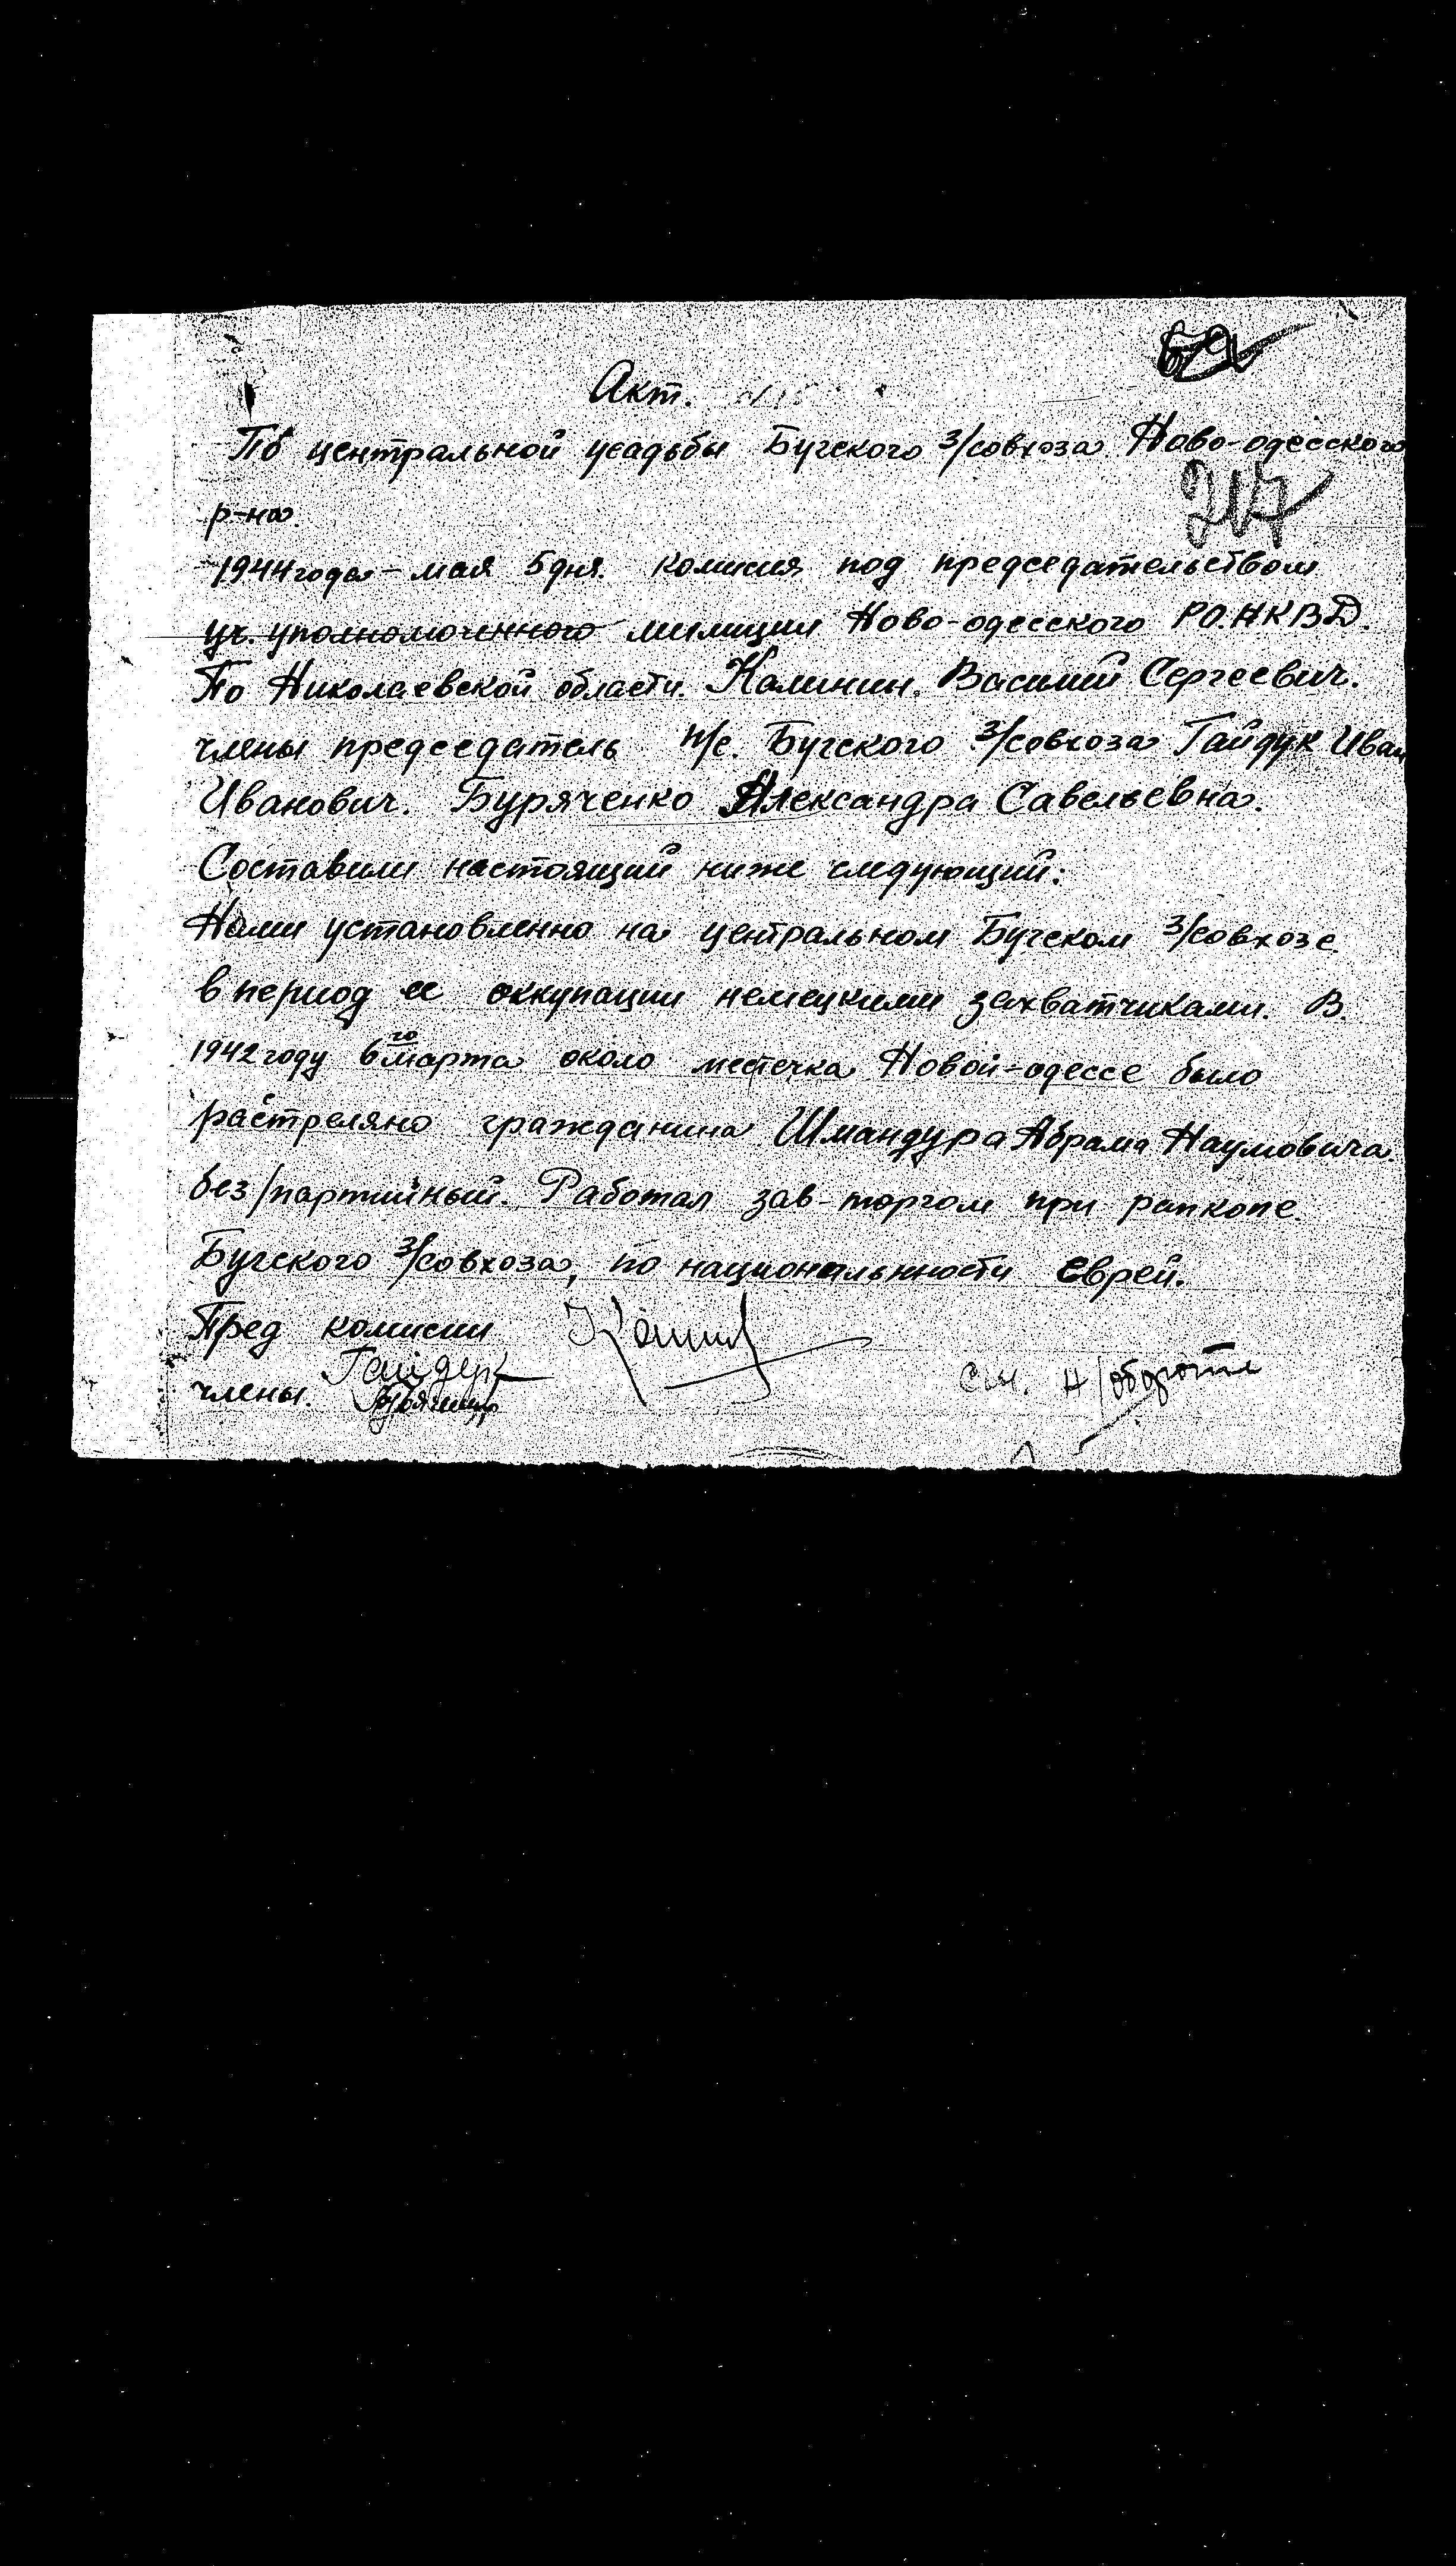 Акт. N 15
По центральной усадьбы Бугского з/совхоза Ново-одесского
217
р-на
1944 года - мая 5 дня. комисия под председательством
уч. уполномоченного милиции Ново-одесского РО.НКВД.
По Николаевской области. Калинин. Василий Сергеевич.
члены председатель п/с. Бугского з/совхоза Гайдук Иван
Иванович. Буряченко Александра Савельевна.
Составили настоящий ниже следующий:
Нами установленно на центральном Бугском з/совхозе
в период ее оккупации немецкими захватчиками. В
1942 году 6го марта около местечка Новой-одессе было
растреляно гражданина Шмандура Абрама Наумовича.
без/партийный. Работал зав-торгом при рапкопе
Бугского з/совхоза, по национальнности еврей.
Пред комисии
члены. Гайдук
см. н/обороте